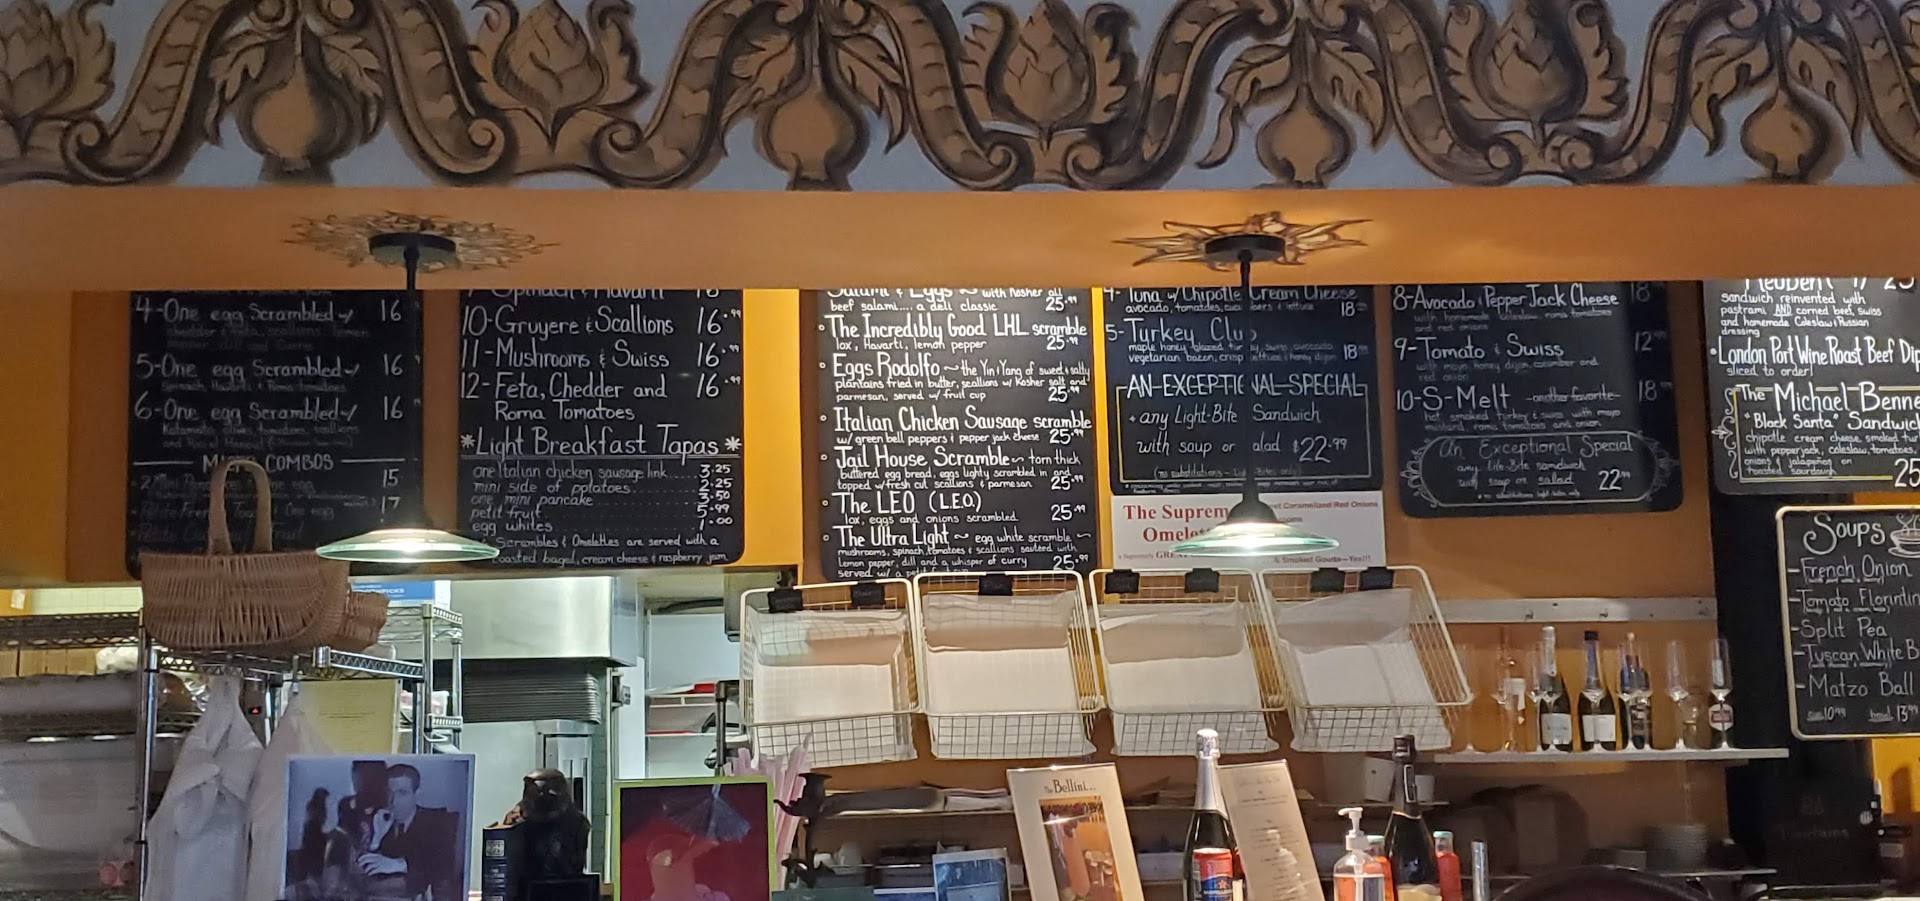 4-One egg Scrambled w/ 16
5-One egg Scrambled w/ 16
Spinach, Havarti & Roma tomatoes
6-One egg Scrambled w/ 16
COMBOS
15
17
10-Gruyere & Scallions 16.99
11-Mushrooms & Swiss 16.99
12-Feta, Chedder and 16.99
Roma Tomatoes
*Light Breakfast Tapas*
one Italian chicken sausage link 3.25
mini side of potatoes 2.25
one mini pancake 3.50
petit fruit 5.99
egg whites 1.00
Scrambles & Omelettes are served with a
toasted bagel, cream cheese & raspberry jam
Salami & Eggs ~ with Kosher all
beef salami.... a deli classic 25.99
• The Incredibly Good LHL scramble
lox, Havarti, lemon pepper 25.99
• Eggs Rodolfo ~ the Yin & Yang of sweet & salty
plantains fried in butter, scallions w/ Kosher salt and
parmesan, served w/ fruit cup 25.99
• Italian Chicken Sausage scramble
w/ green bell peppers & pepper jack cheese 25.99
• Jail House Scramble ~ torn thick
buttered egg bread, eggs lightly scrambled in and
topped w/ fresh cut scallions & parmesan 25.99
• The LEO (L.E.O.)
lox, eggs and onions scrambled 25.99
• The Ultra Light ~ egg white scramble ~
mushrooms, spinach, tomatoes & scallions sauteed with
lemon pepper, dill and a whisper of curry 25.99
served w/ a petit
4-Tuna w/ Chipotle Cream Cheese
avocado, tomatoes, & lettuce 18
5-Turkey Clu
maple honey glazed avocado
vegetarian bacon, crisp lettuce & honey dijon 18.99
AN EXCEPTIONAL SPECIAL
any Light-Bite Sandwich
with soup or salad $22.99
The Suprem
Omel
Caramelized Red Onions
& Smoked Gouda—Yes!!!
8-Avocado & Pepper Jack Cheese 18
with homemade Coleslaw, roma tomatoes
and red onions
9-Tomato & Swiss 12.99
with mayo, honey dijon, cucumber and
red onion
10-S-Melt -another favorite- 18
hot smoked turkey & swiss with mayo
mustard, roma tomatoes and onion
An Exceptional Special
any Lite-Bite sandwich
with soup or salad 22.99
Reuben 25
sandwich reinvented with
pastrami AND corned beef, swiss
and homemade Coleslaw & Russian
dressing
• London Port Wine Roast Beef Dip
sliced to order!
The Michael Benne
"Black Santa" Sandwich
chipotle cream cheese, smoked tur
with pepperjack, coleslaw, tomatoes,
onions & jalapeños on
toasted sourdough 25
Soups
-French Onion
-Tomato Florentin
-Split Pea
-Tuscan White B
-Matzo Ball
cup 10.99 bowl 13.99
The Bellini...